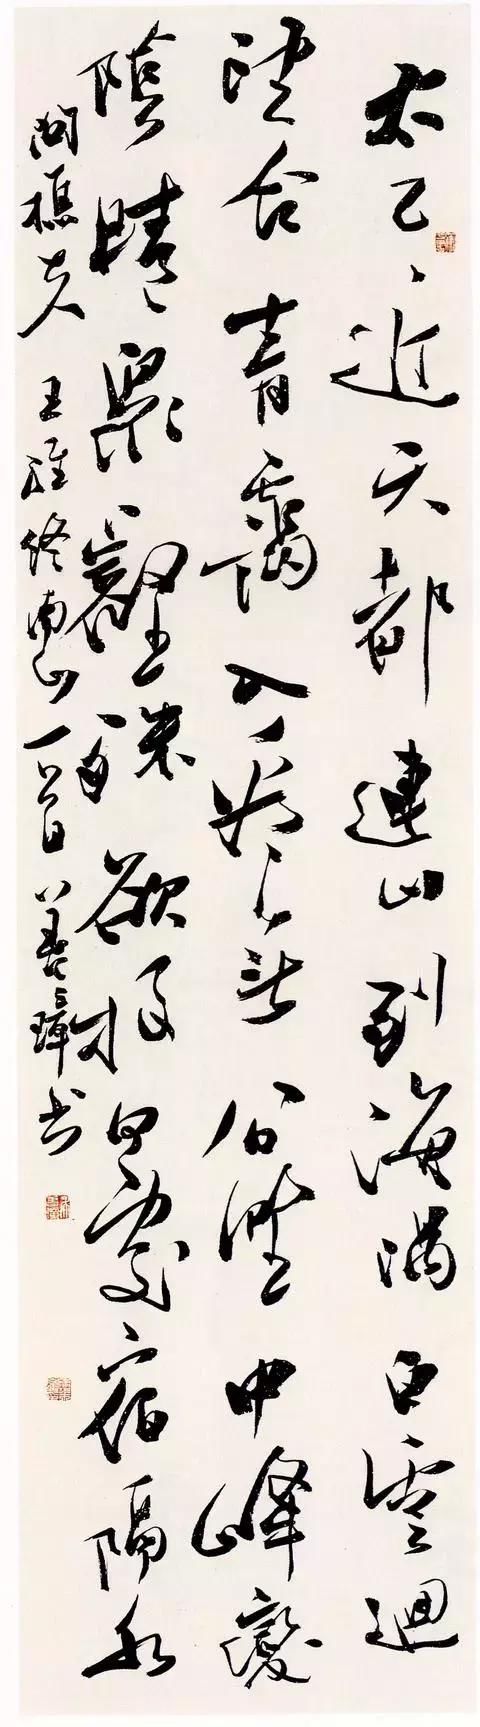 太乙近天都連山到海隅白雲迴
望合青靄入看無分野中峰變
陰晴眾壑殊欲投何處宿隔水
問樵夫 王維終南山一首 善璋书